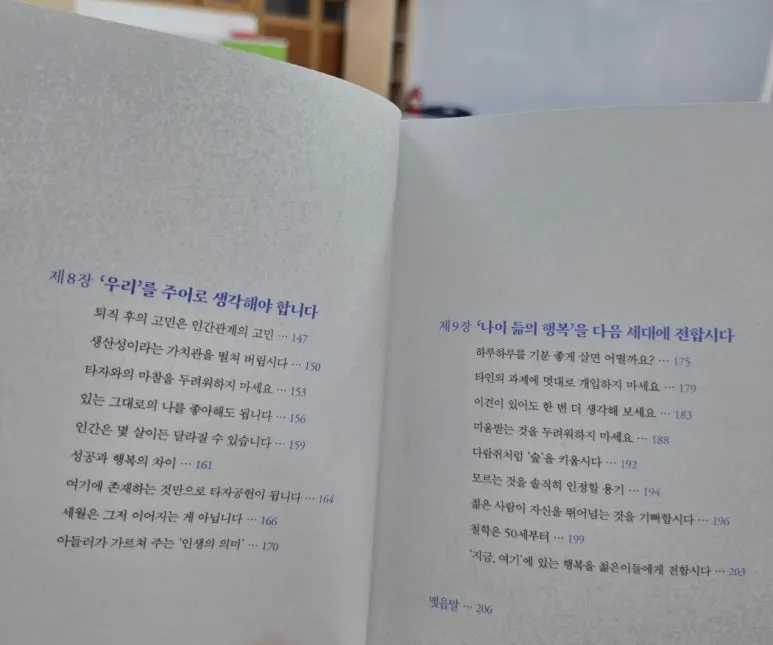 제8장 ‘우리’를 주어로 생각해야 합니다
퇴직 후의 고민은 인간관계의 고민 … 147
생산성이라는 가치관을 떨쳐 버립시다 … 150
타자와의 마찰을 두려워하지 마세요 … 153
있는 그대로의 나를 좋아해도 됩니다 … 156
인간은 몇 살이든 달라질 수 있습니다 … 159
성공과 행복의 차이 … 161
여기에 존재하는 것만으로 타자공헌이 됩니다 … 164
세월은 그저 이어지는 게 아닙니다 … 166
아들러가 가르쳐 주는 ‘인생의 의미’ … 170
제9장 ‘나이 듦의 행복’을 다음 세대에 전합시다
하루하루를 기분 좋게 살면 어떨까요? … 175
타인의 과제에 멋대로 개입하지 마세요 … 179
이견이 있어도 한 번 더 생각해 보세요 … 183
미움받는 것을 두려워하지 마세요 … 188
다람쥐처럼 ‘숲’을 키웁시다 … 192
모르는 것을 솔직히 인정할 용기 … 194
젊은 사람이 자신을 뛰어넘는 것을 기뻐합시다 … 196
철학은 50세부터 … 199
‘지금, 여기’에 있는 행복을 젊은이들에게 전합시다 … 203
맺음말 … 206